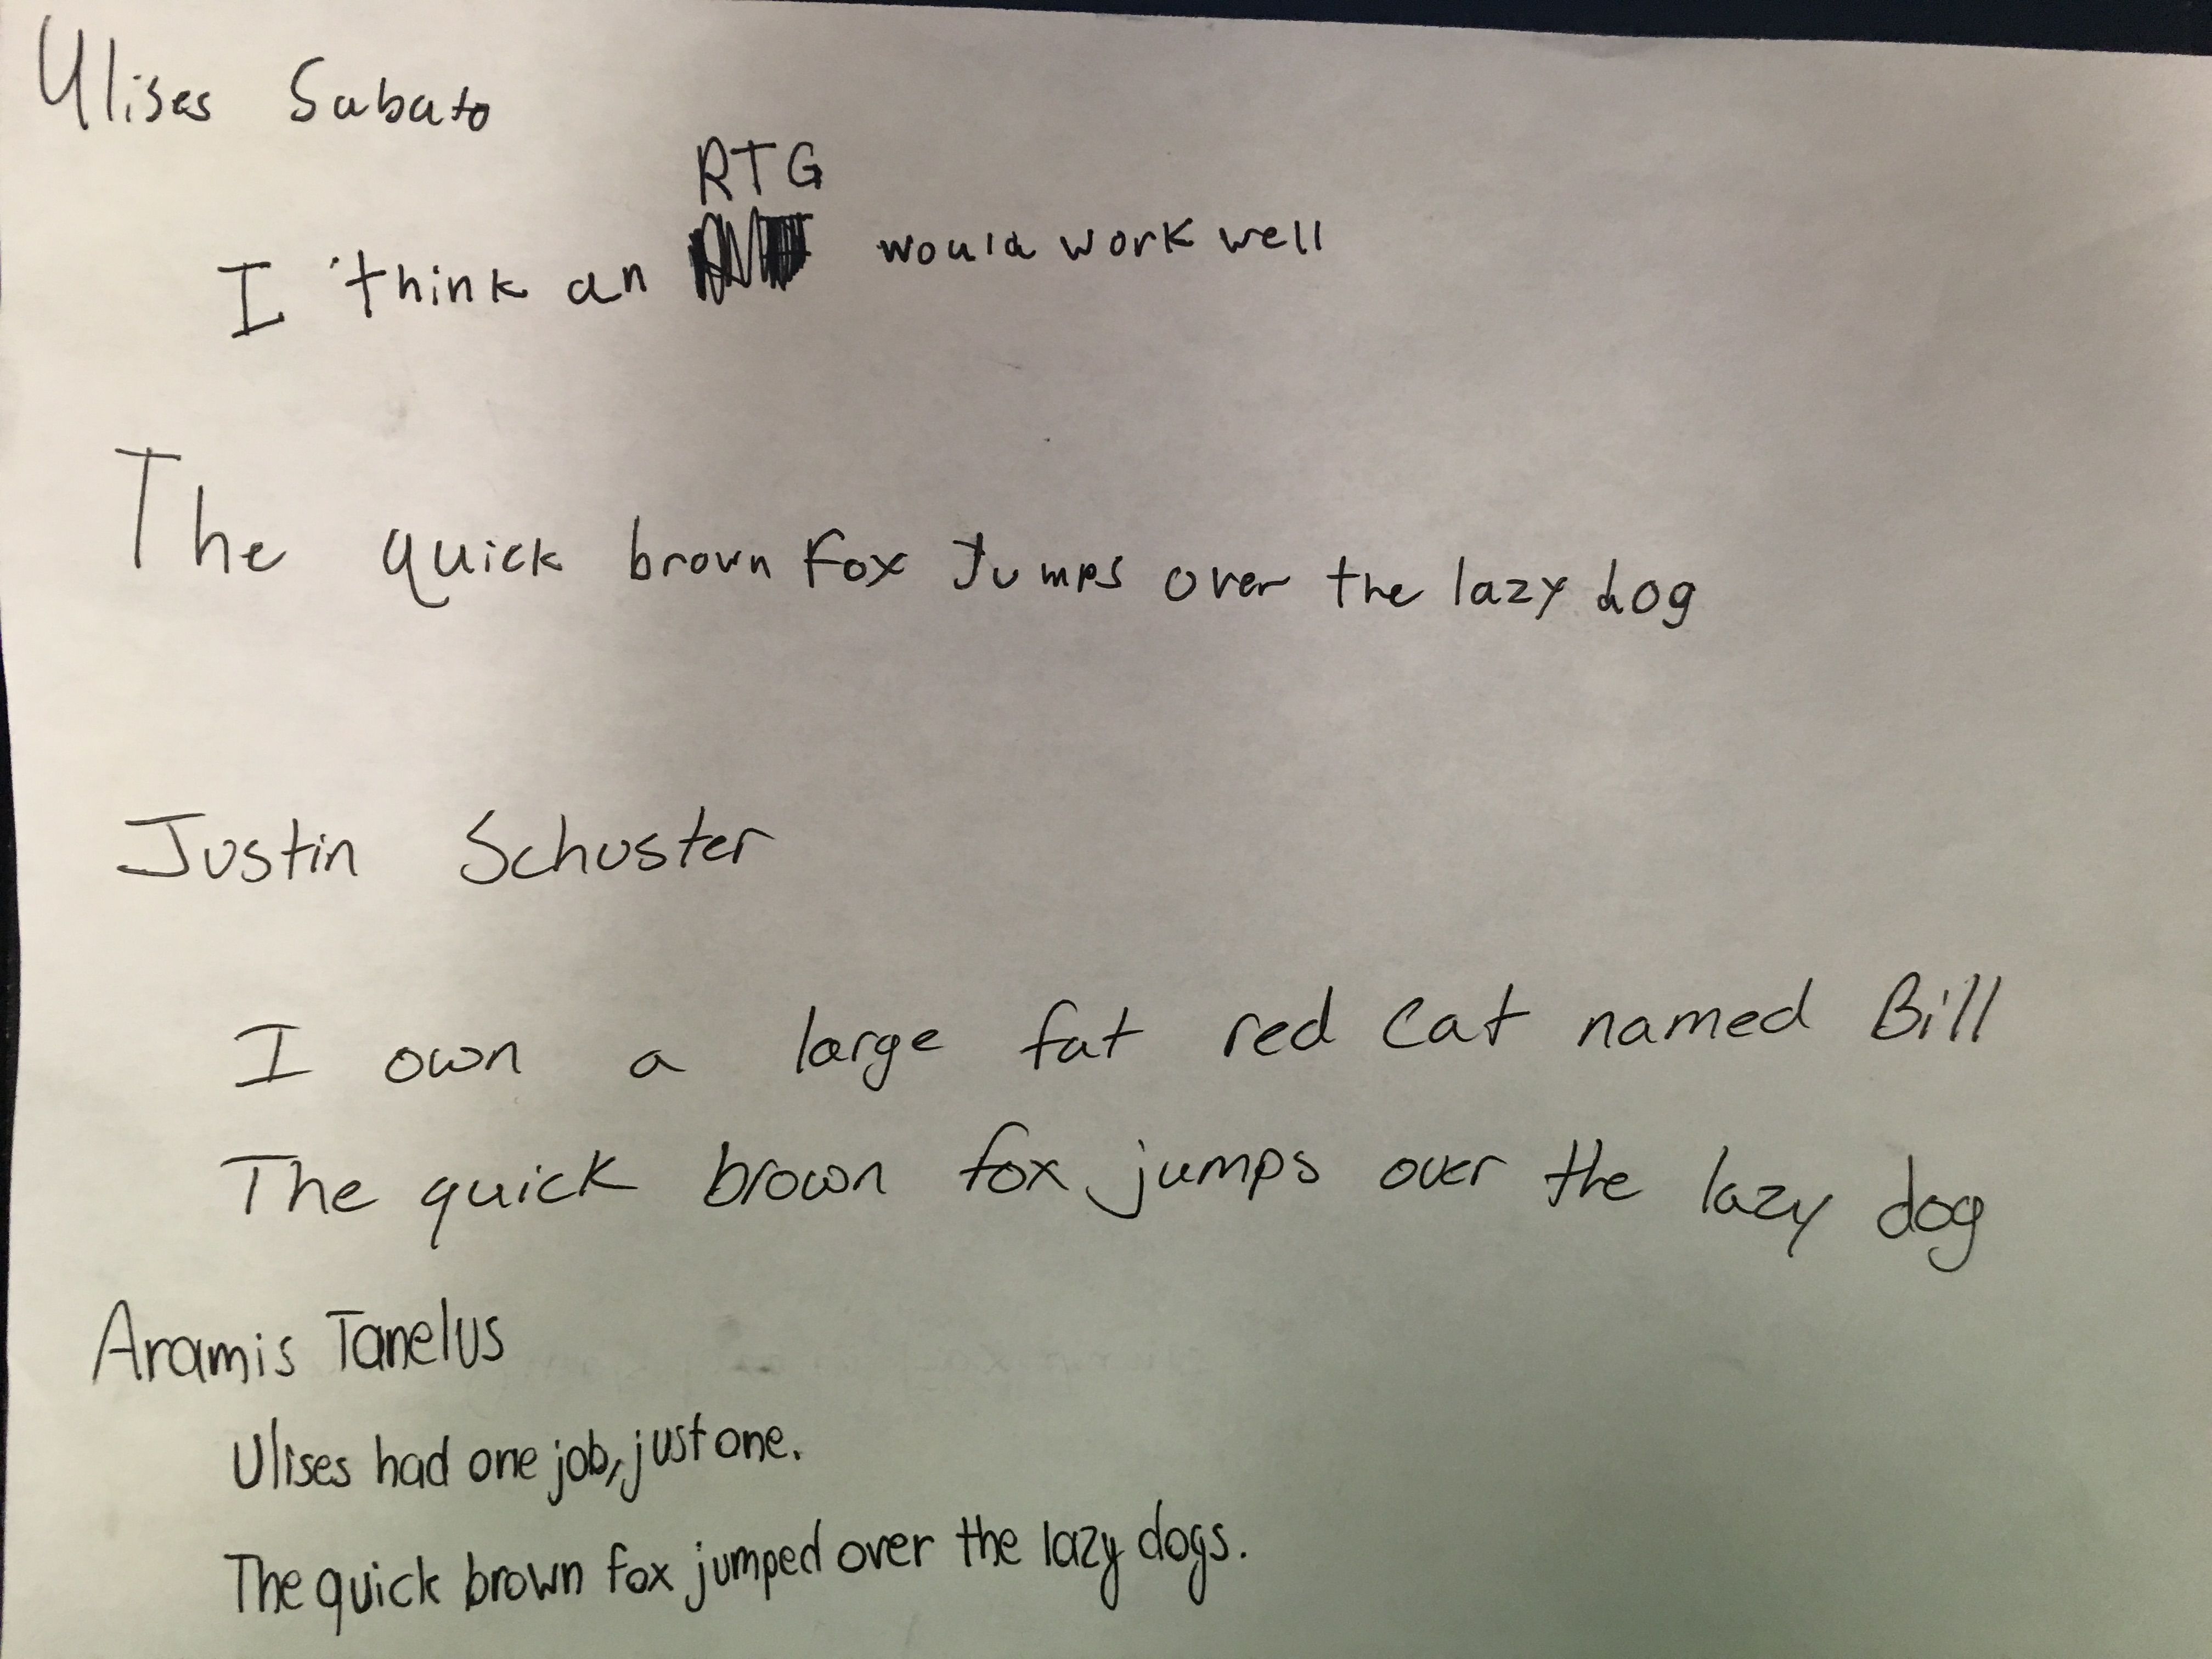 Ulises Sabato
RTG
I think an would work well
The quick brown fox Jumps over the lazy dog
Justin Schuster
I own a large fat red Cat named Bill
The quick brown fox jumps over the lazy dog
Aramis Tanelus
Ulises had one job, just one.
The quick brown fox jumped over the lazy dogs.